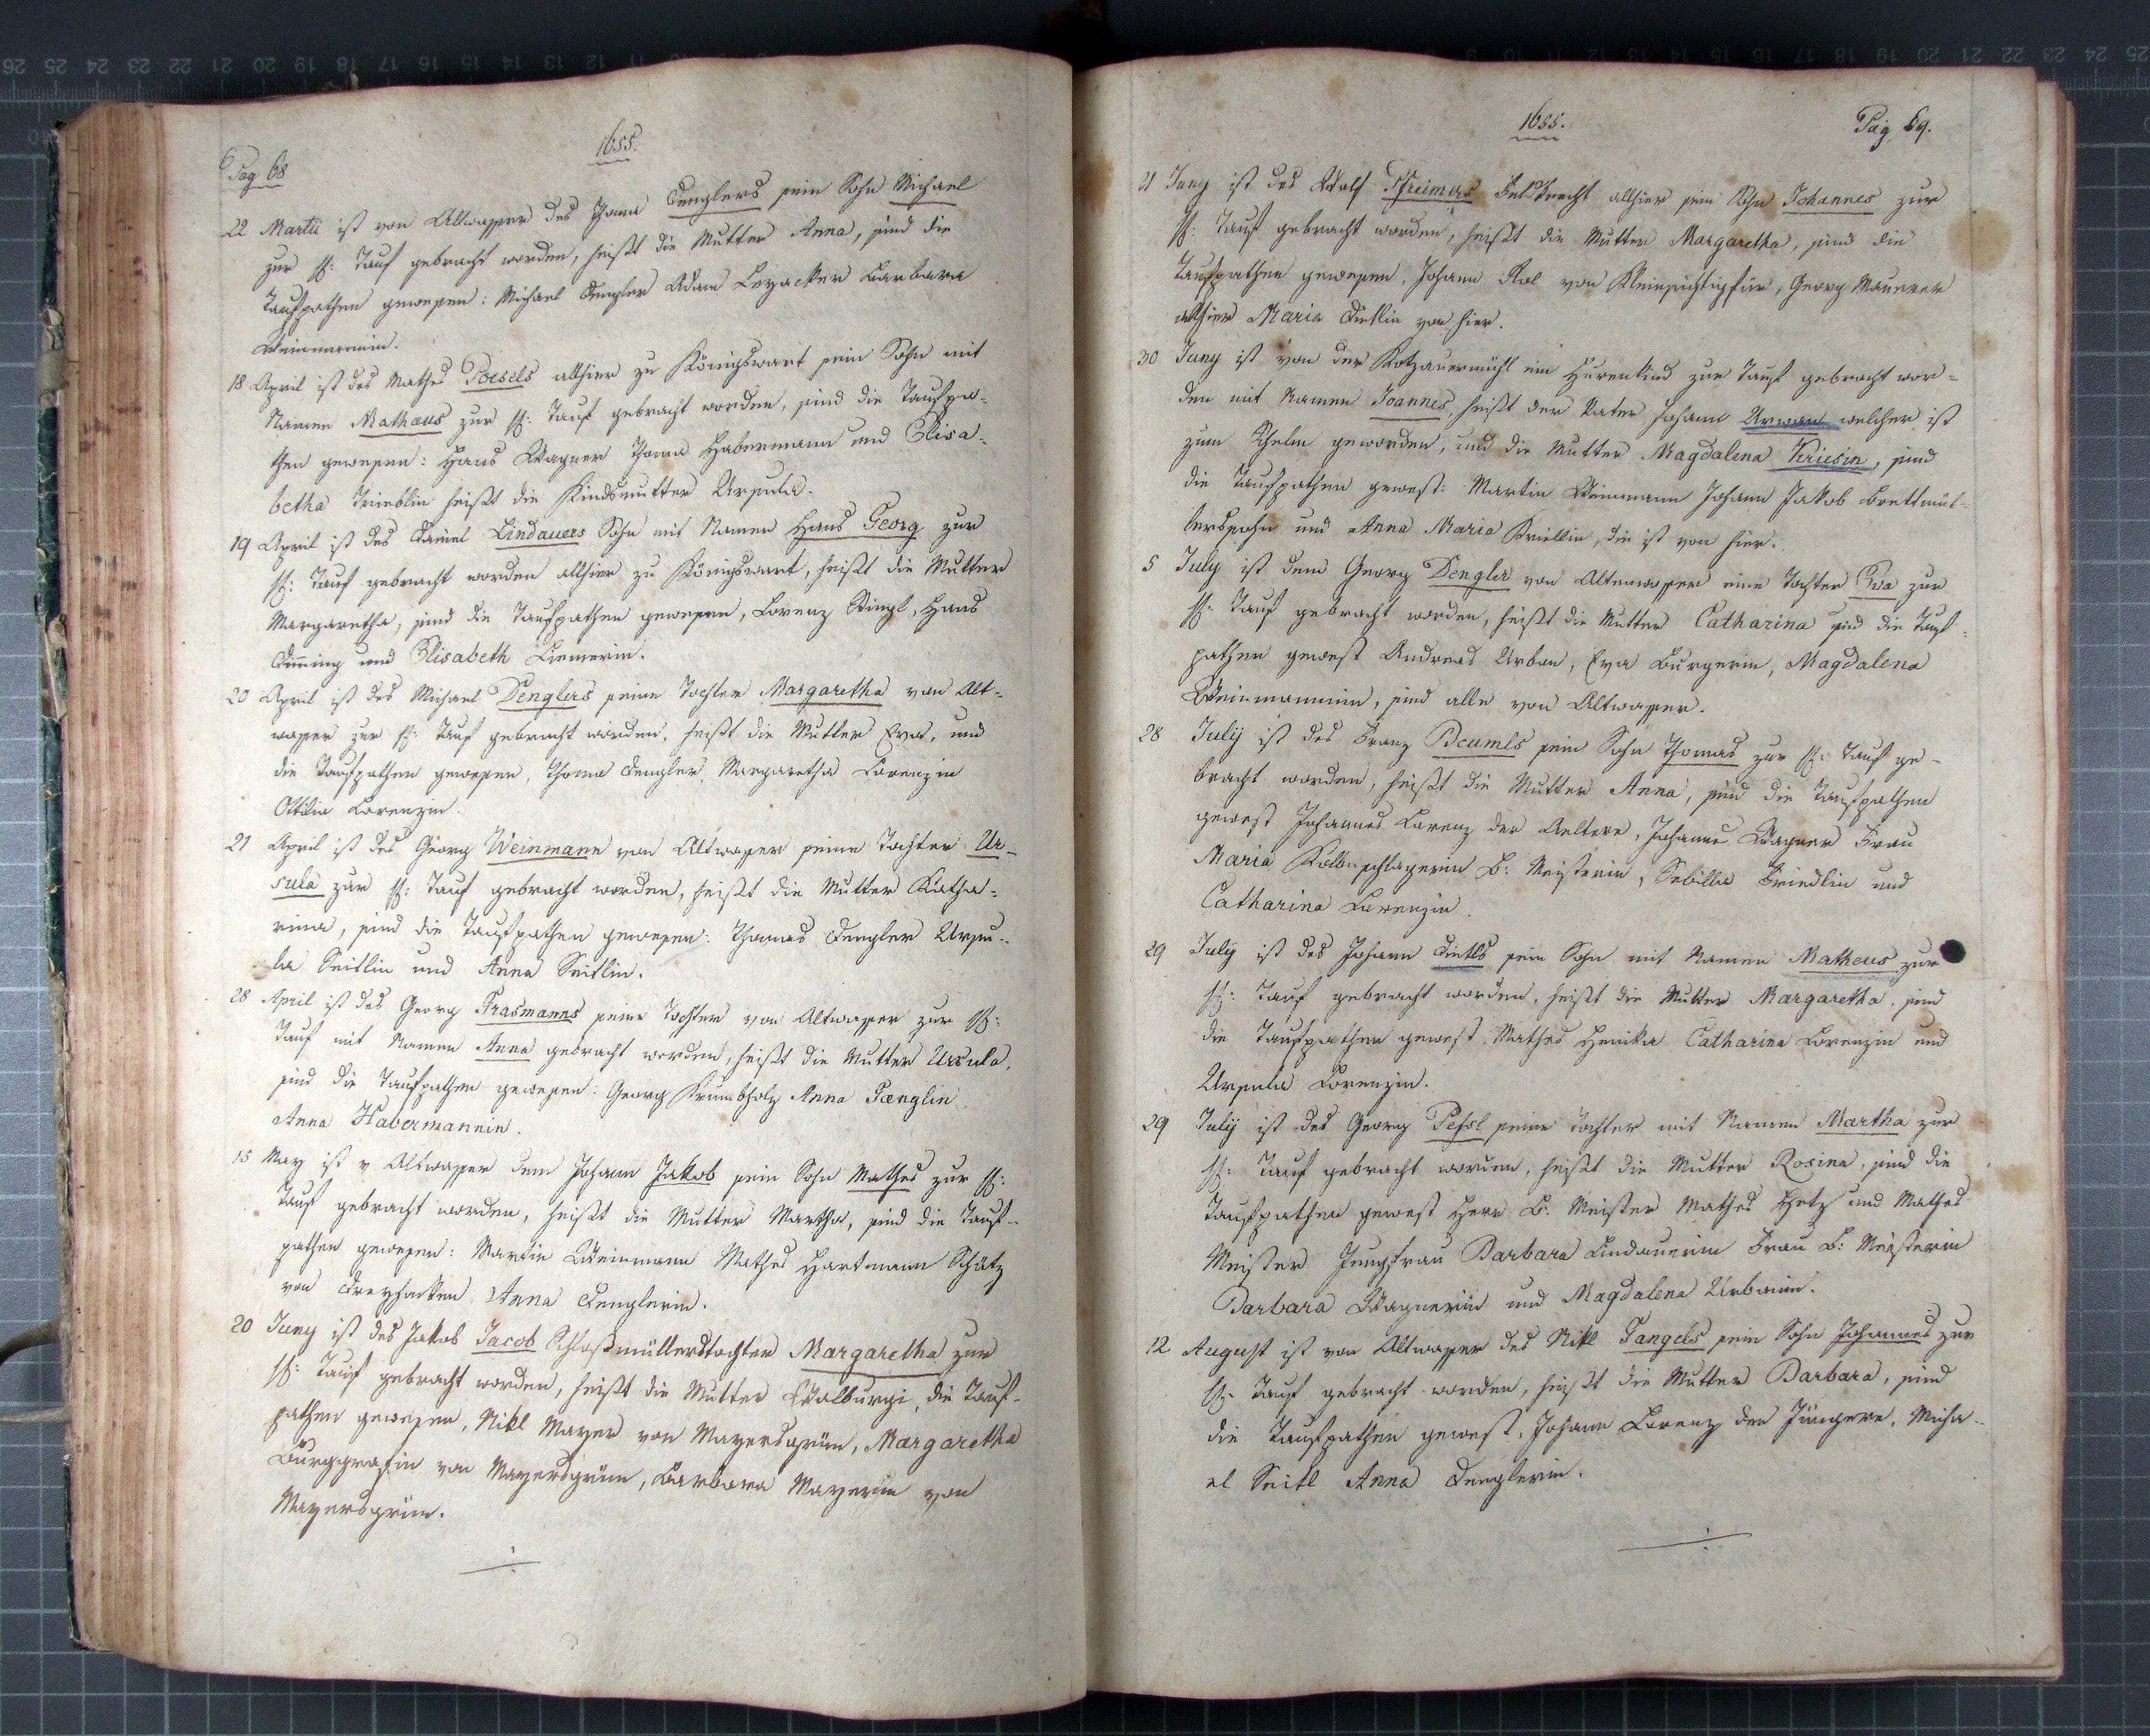 Pag 68
1655.
22 Martii ist von Altwasser des Thoma Denglers sein Sohn Michael
zur H: Tauf gebracht worden, heißt die Mutter Anna, sind die
Taufpathen gewesen: Michael Dengler Adam Barbara
Weinmannin.
18 April ist des Mathes Poesels allhier zu Königswart sein Sohn mit
Namen Mathaus zur H: Tauf gebracht worden, sind die Taufpa-
then gewesen: Hans Wagner Thoma Habermann und Elisa-
betha heißt die Kindsmutter Ursula.
19 April ist des Daniel Lindauers Sohn mit Namen Hans Georg zur
H: Tauf gebracht worden allhier zu Königswart, heißt die Mutter
Margaretha, sind die Taufpathen gewesen, Lorenz Hans
und Elisabeth
20 April ist des Michael Denglers seine Tochter Margaretha von Alt-
wasser zur H: Tauf gebracht worden, heißt die Mutter Eva, und
die Taufpathen gewesen, Thoma Dengler, Margaretha Lorenzin
Ottilia Lorenzin.
21 April ist des Georg Weinmann von Altwasser seine Tochter Ur-
sula zur H: Tauf gebracht worden, heißt die Mutter Katha-
rina, sind die Taufpathen gewesen: Thomas Dengler Ursu-
la Seitlin und Anna Seitlin.
28 April ist des Georg Frasmanns seine Tochter von Altwasser zur H:
Tauf mit Namen Anna gebracht worden, heißt die Mutter Ursula,
sind die Taufpathen gewesen: Georg Krumbholz Anna Tænglin
Anna Habermannin.
15 May ist v Altwasser dem Johann Jakob sein Sohn Mathes zur H:
Tauf gebracht worden, heißt die Mutter Martha, sind die Tauf-
pathen gewesen: Martin Weinmann Mathes Hartmann Schütz
von Dreyhacken Anna Denglerin.
20 Juny ist des Jakob Jacob Schloßmüllerstochter Margaretha zur
H: Tauf gebracht worden, heißt die Mutter Walburgi, die Tauf-
pathen gewesen, Nikl Mayer von Mayersgrün, Margaretha
Burggrafin von Mayersgrün, Barbara Mayerin von
Mayersgrün.
1655.
Pag 69.
21 Juny ist des Wolf Pfreimers Feldknecht allhier sein Sohn Johannes zur
H: Tauf gebracht worden, heißt die Mutter Margaretha, sind die
Taufpathen gewesen, Johann von Kleinsichtigfür, Georg Maurer
allhier Maria Dietlin von hier.
30 Juny ist von der Kotzauermühl ein Hurenkind zur Tauf gebracht wor-
den mit Namen Joannes, heißt der Vater Johann Urwan welcher ist
zum Schelm geworden, und die Mutter Magdalena Kriesin, sind
die Taufpathen gewest: Martin Weinmann Johann Jakob Brettmül-
lerssohn und Anna Maria Kriellin, die ist von hier.
5 July ist dem Georg Dengler von Altenwasser eine Tochter Eva zur
H: Tauf gebracht worden, heißt die Mutter Catharina sind die Tauf-
pathen gewest Andreas Urban, Eva Burgerin, Magdalena
Weinmannin, sind alle von Altwasser.
28 July ist des Franz Beumls sein Sohn Thomas zur H: Tauf ge-
bracht worden, heißt die Mutter Anna, sind die Taufpathen
gewest Johannes Lorenz der Aeltere, Johannes Wagner Frau
Maria Kolbnschlagerin B: Meisterin, Sebilla Friedlin und
Catharina Lorenzin.
29 July ist des Johann Dietls sein Sohn mit Namen Matheus zur
H: Tauf gebracht worden, heißt die Mutter Margaretha, sind
die Taufpathen gewest Mathes Henika Catharina Lorenzin und
Ursula Lorenzin.
29 July ist des Georg Peßl seine Tochter mit Namen Martha zur
H: Tauf gebracht worden, heißt die Mutter Rosina, sind die
Taufpathen gewest Herr B: Meister Mathes Hetz und Mathes
Meister Jungfrau Barbara Lindauerin Frau B: Meisterin
Barbara Wagnerin und Magdalena Urbanin.
12 August ist von Altwasser des Nikl Tangels sein Sohn Johannes zur
H: Tauf gebracht worden, heißt die Mutter Barbara, sind
die Taufpathen gewest, Johann Lorenz der Jüngere, Micha-
el Seitl Anna Denglerin.